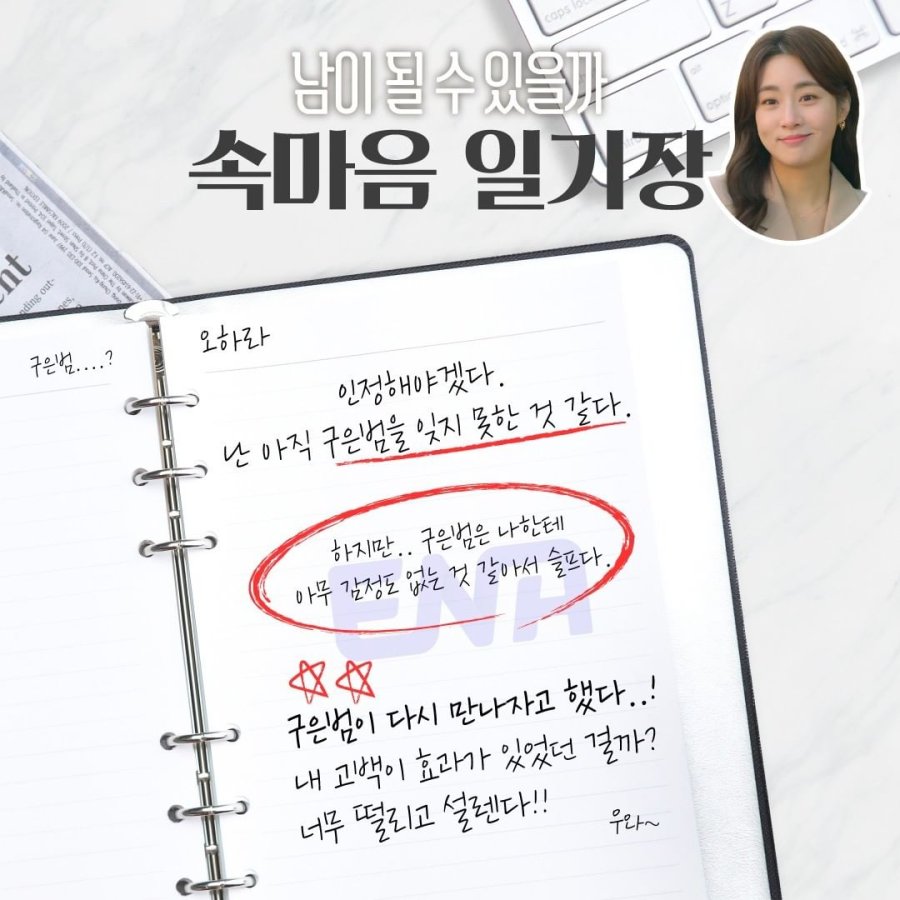 남이 될 수 있을까
속마음 일기장
caps lock
option
구은범....?
오하라
인정해야겠다.
난 아직 구은범을 잊지 못한 것 같다.
하지만.. 구은범은 나한테
아무 감정도 없는 것 같아서 슬프다.
ENA
구은범이 다시 만나자고 했다..!
내 고백이 효과가 있었던 걸까?
너무 떨리고 설렌다!!
우와~